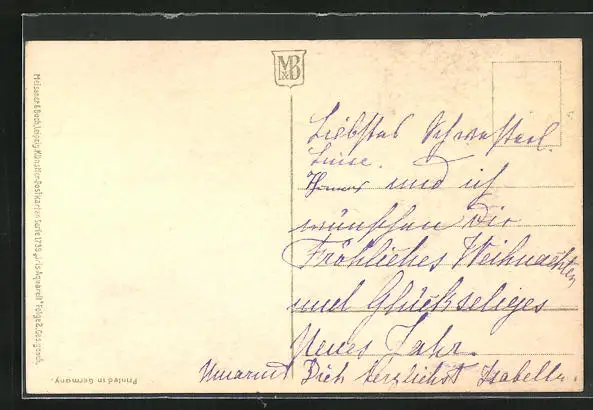 M&B
Liebstes Schwesterl.
Luise.
und ich
wünschen Dir
Fröhliches Weihnachten
und Glückseliges
Neues Jahr.
Umarmt Dich herzlichst Isabella.
Meissner & Buch, Leipzig. Künstler-Postkarten Serie 1739 "Iris-Aquarell" Folge 2. Ges. gesch.
Printed in Germany.